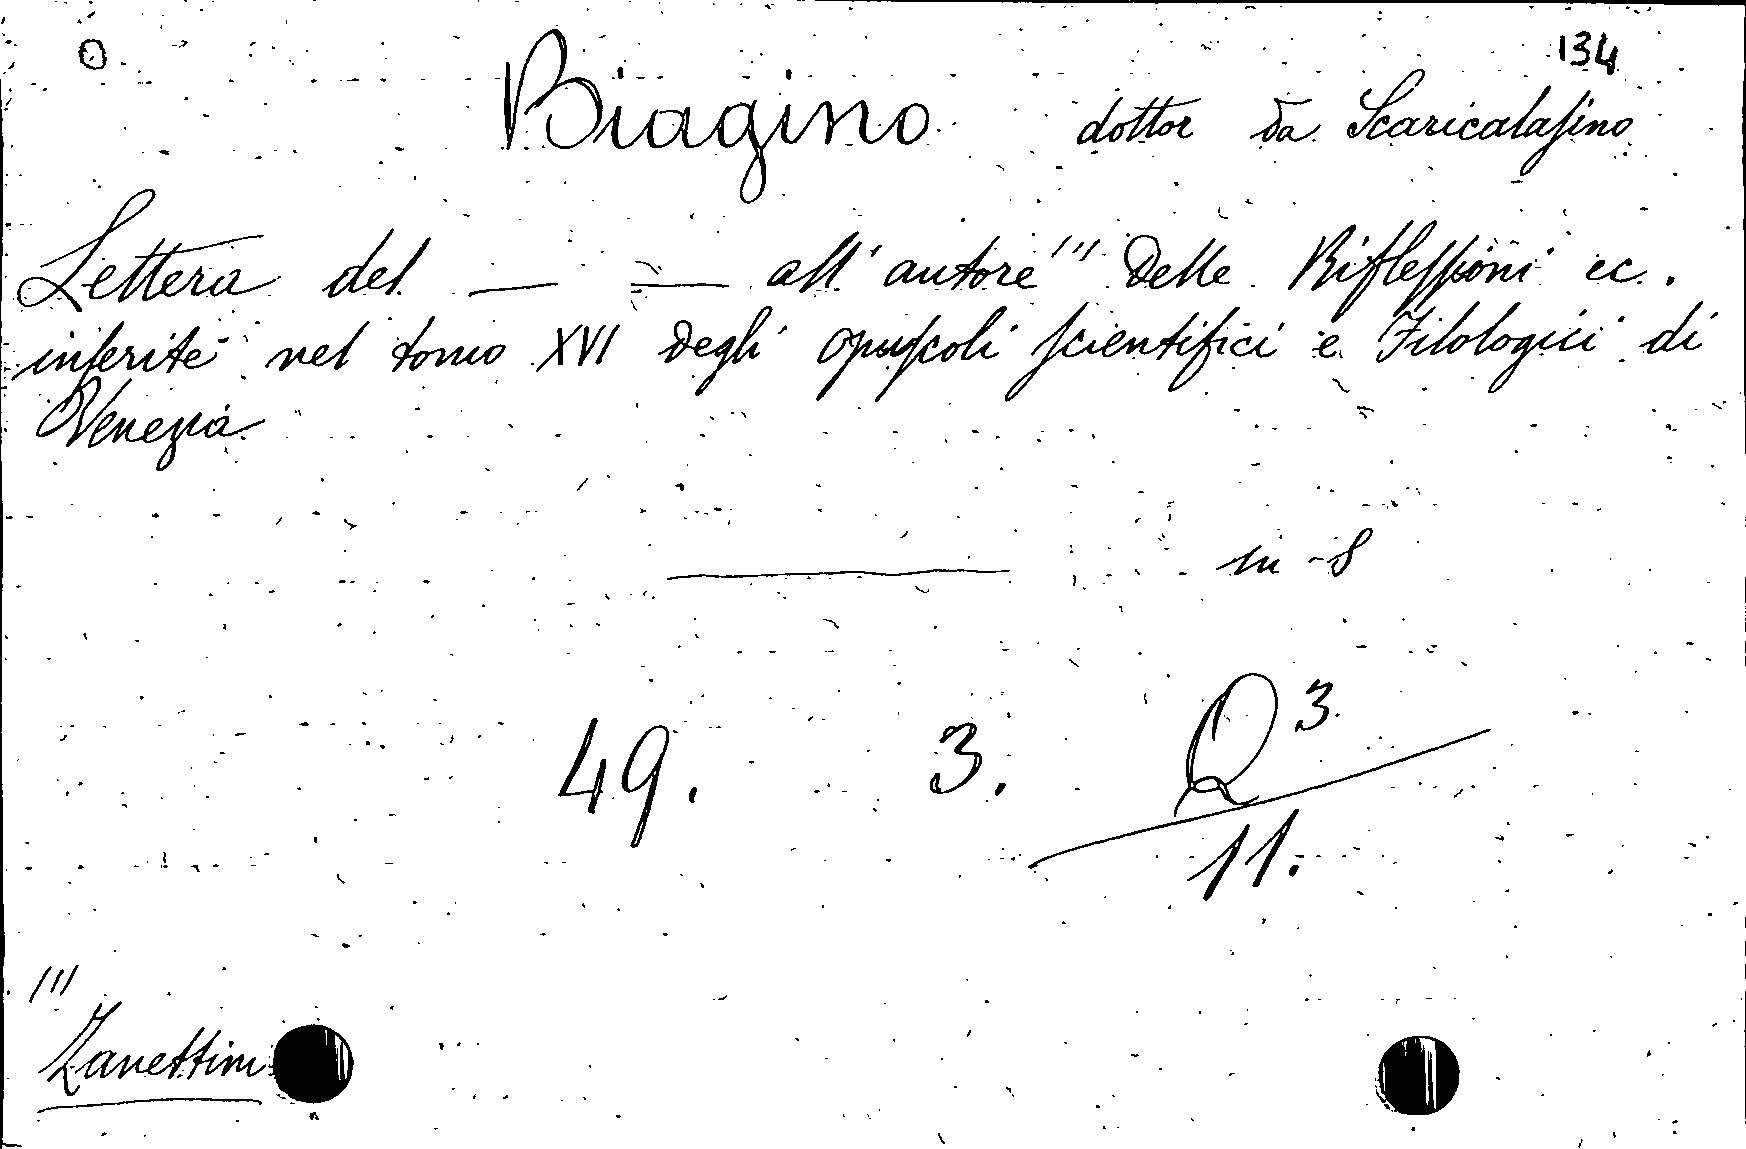 O 134
Biagino dottor da Scaricalaſino
Lettera del — — all'autore (1) delle Rifleſſioni ec.
inſerite nel tomo XVI degli opuſcoli ſcientifici e Filologici di
Venezia
——— in-8
49. 3. Q3
11.
(1)
Zanettini